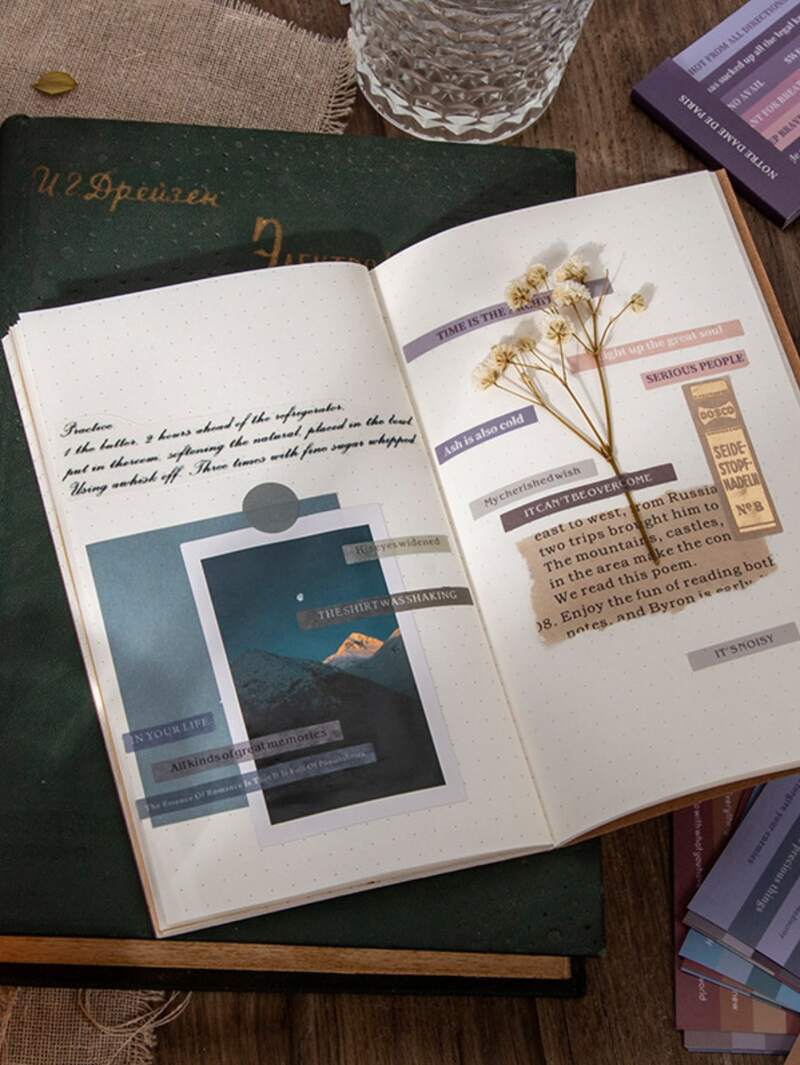 И.Г. Дрейзен
Электро
Practice
1 the butter, 2 hours ahead of the refrigerator,
put in theroom, softening the natural, placed in the bowl
Using awhisk off. Three times with fine sugar whipped
His eyes widened
THE SHIRT WAS SHAKING
IN YOUR LIFE
All kinds of great memories
The Essence Of Romance Is That It Is Full Of
TIME IS THE
light up the great soul
SERIOUS PEOPLE
Ash is also cold
My cherished wish
IT CAN'T BE OVERCOME
DOSCO
SEIDE-
STOPF-
NADELN
No 8
east to west, from Russia
two trips brought him to
The mountains, castles,
in the area make the con
We read this poem.
08. Enjoy the fun of reading both
notes, and Byron is early
IT'S NOISY
HOT FROM ALL DIRECTIONS
sucked up all the legal
NO AVAIL
NOTRE DAME DE PARIS
your enemies
precious things
world
new